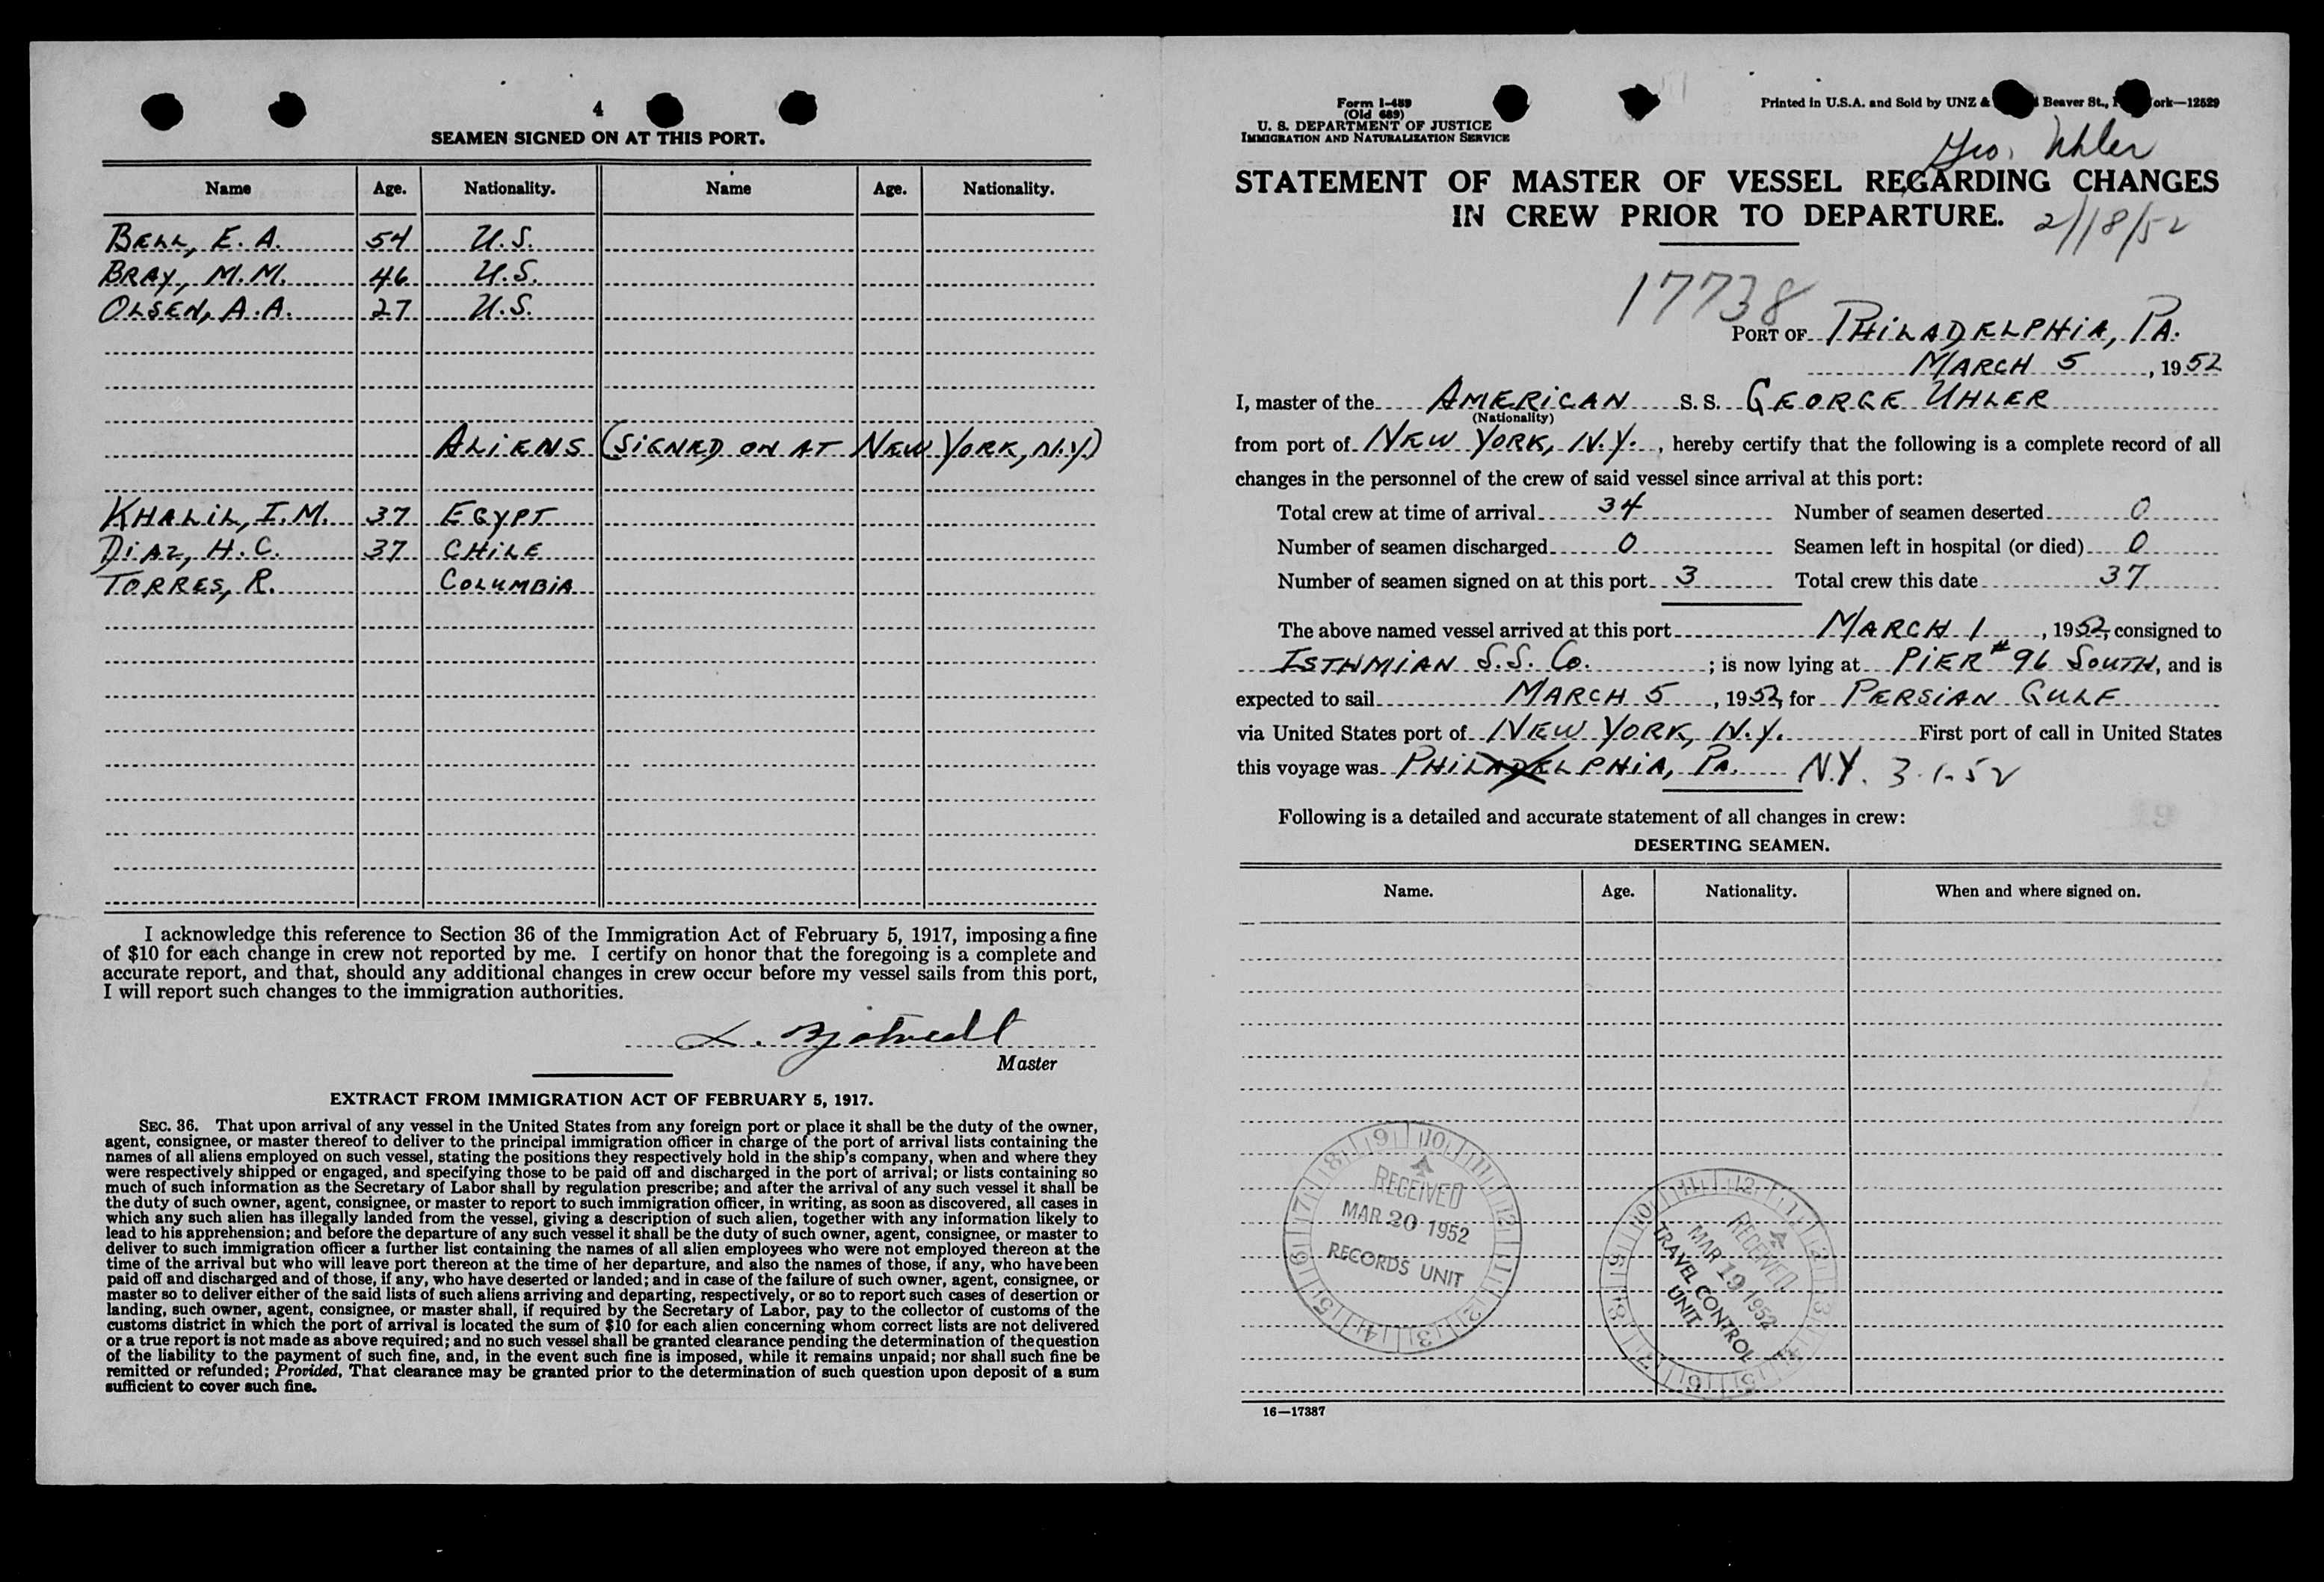 4
SEAMEN SIGNED ON AT THIS PORT.
Name Age. Nationality. Name Age. Nationality.
BELL, E. A. 54 U.S.
BRAY, M. M. 46 U.S.
OLSEN, A. A. 27 U.S.
ALIENS (SIGNED ON AT NEW YORK, N.Y.)
KHALIL, I. M. 37 EGYPT
DIAZ, H. C. 37 CHILE
TORRES, R. COLUMBIA
I acknowledge this reference to Section 36 of the Immigration Act of February 5, 1917, imposing a fine
of $10 for each change in crew not reported by me. I certify on honor that the foregoing is a complete and
accurate report, and that, should any additional changes in crew occur before my vessel sails from this port,
I will report such changes to the immigration authorities.
L.
Master
EXTRACT FROM IMMIGRATION ACT OF FEBRUARY 5, 1917.
SEC. 36. That upon arrival of any vessel in the United States from any foreign port or place it shall be the duty of the owner,
agent, consignee, or master thereof to deliver to the principal immigration officer in charge of the port of arrival lists containing the
names of all aliens employed on such vessel, stating the positions they respectively hold in the ship's company, when and where they
were respectively shipped or engaged, and specifying those to be paid off and discharged in the port of arrival; or lists containing so
much of such information as the Secretary of Labor shall by regulation prescribe; and after the arrival of any such vessel it shall be
the duty of such owner, agent, consignee, or master to report to such immigration officer, in writing, as soon as discovered, all cases in
which any such alien has illegally landed from the vessel, giving a description of such alien, together with any information likely to
lead to his apprehension; and before the departure of any such vessel it shall be the duty of such owner, agent, consignee, or master to
deliver to such immigration officer a further list containing the names of all alien employees who were not employed thereon at the
time of the arrival but who will leave port thereon at the time of her departure, and also the names of those, if any, who have been
paid off and discharged and of those, if any, who have deserted or landed; and in case of the failure of such owner, agent, consignee, or
master so to deliver either of the said lists of such aliens arriving and departing, respectively, or so to report such cases of desertion or
landing, such owner, agent, consignee, or master shall, if required by the Secretary of Labor, pay to the collector of customs of the
customs district in which the port of arrival is located the sum of $10 for each alien concerning whom correct lists are not delivered
or a true report is not made as above required; and no such vessel shall be granted clearance pending the determination of the question
of the liability to the payment of such fine, and, in the event such fine is imposed, while it remains unpaid; nor shall such fine be
remitted or refunded; Provided, That clearance may be granted prior to the determination of such question upon deposit of a sum
sufficient to cover such fine.
Form I-489
(Old 689)
U. S. DEPARTMENT OF JUSTICE
IMMIGRATION AND NATURALIZATION SERVICE
Printed in U.S.A. and Sold by UNZ & Beaver St., ork—12529
Geo. Uhler
STATEMENT OF MASTER OF VESSEL REGARDING CHANGES
IN CREW PRIOR TO DEPARTURE.
2/18/52
17738
PORT OF PHILADELPHIA, PA.
MARCH 5, 1952
I, master of the AMERICAN S. S. GEORGE UHLER
(Nationality)
from port of NEW YORK, N.Y., hereby certify that the following is a complete record of all
changes in the personnel of the crew of said vessel since arrival at this port:
Total crew at time of arrival 34 Number of seamen deserted 0
Number of seamen discharged 0 Seamen left in hospital (or died) 0
Number of seamen signed on at this port 3 Total crew this date 37
The above named vessel arrived at this port MARCH 1, 1952, consigned to
ISTHMIAN S.S. Co.; is now lying at PIER #96 SOUTH, and is
expected to sail MARCH 5, 1952, for PERSIAN GULF
via United States port of NEW YORK, N.Y. First port of call in United States
this voyage was PHILADELPHIA, PA. N.Y. 3-1-52
Following is a detailed and accurate statement of all changes in crew:
DESERTING SEAMEN.
Name. Age. Nationality. When and where signed on.
RECEIVED
MAR 20 1952
RECORDS UNIT
RECEIVED
MAR 19 1952
TRAVEL CONTROL
UNIT
16—17387